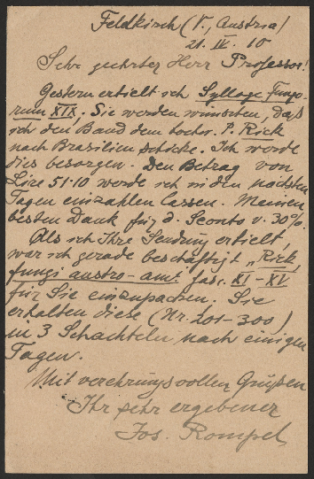 Feldkirch (V., Austria)
21. IV. 10
Sehr geehrter Herr Professor!
Gestern erhielt ich Sylloge Fungo-
rum XIX. Sie werden wünschen, daß
ich den Band dem hochw. P. Rick
nach Brasilien schicke. Ich werde
dies besorgen. Den Betrag von
Lire 51·10 werde ich in den nächsten
Tagen einzahlen lassen. Meinen
besten Dank für d. Sconto v. 30%.
Als ich Ihre Sendung erhielt,
war ich gerade beschäftigt „Rick,
fungi austro-am. fasc. XI–XV
für Sie einzupacken. Sie
erhalten diese (Nr. 201–300)
in 3 Schachteln nach einigen
Tagen.
Mit verehrungsvollen Grüßen
Ihr sehr ergebener
Jos. Rompel